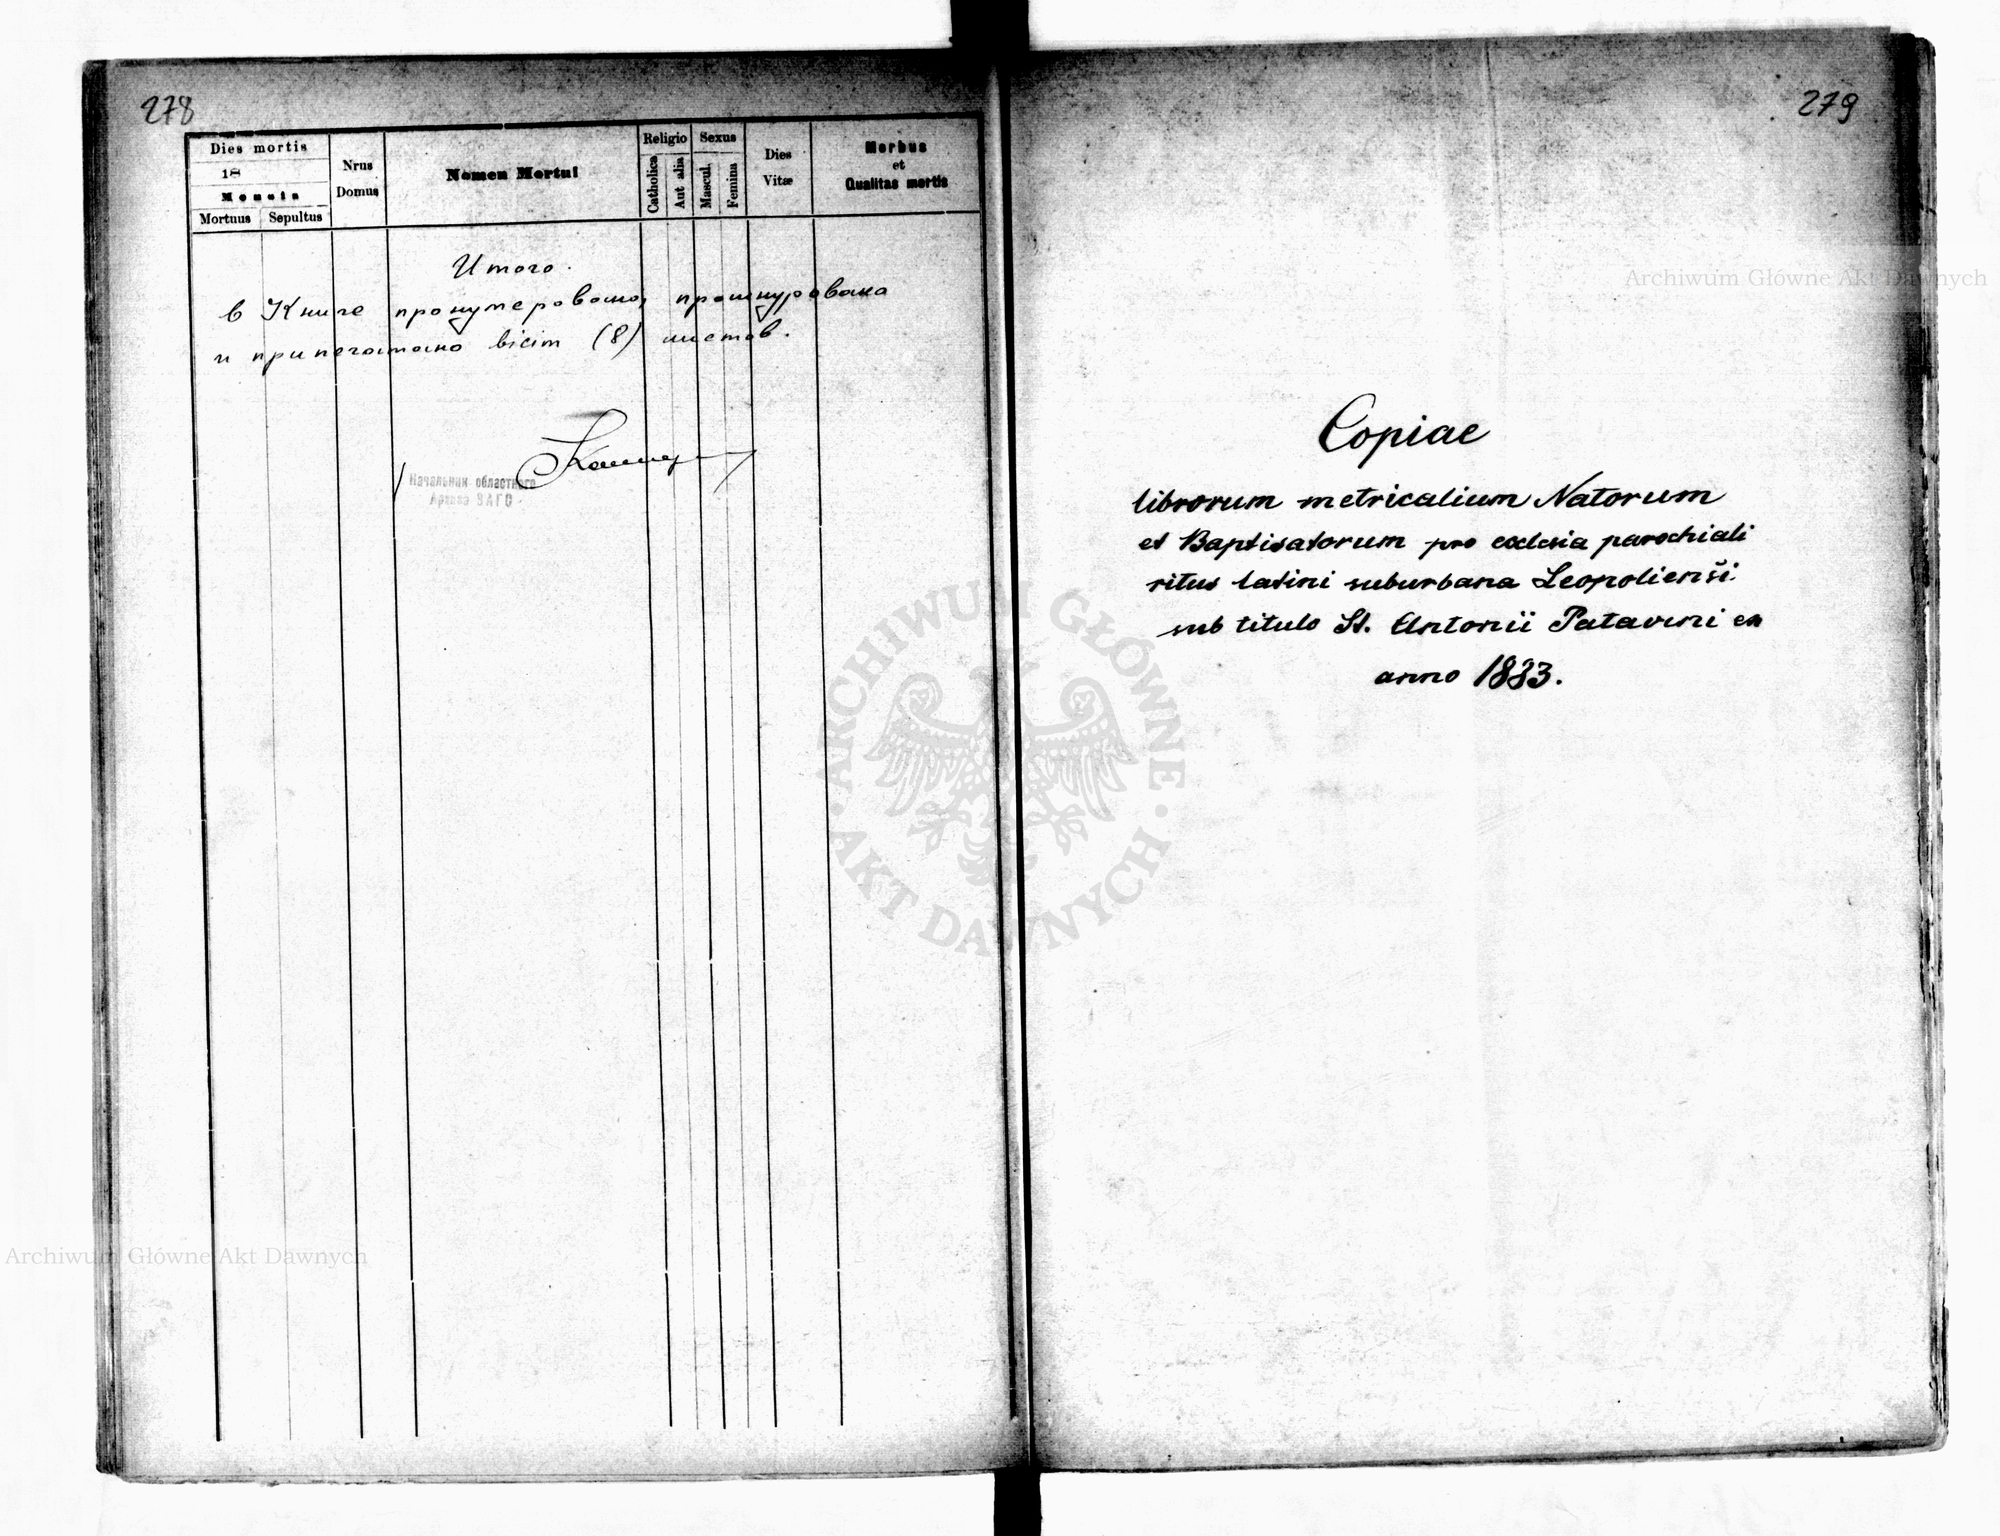 278
Dies mortis
18
Mensis
Mortuus
Sepultus
Nrus
Domus
Nomen Mortui
Religio
Catholica
Aut alia
Sexus
Mascul.
Femina
Dies
Vitæ
Morbus
et
Qualitas mortis
Итого.
в Книге пронумеровано, прошнурована
и припечатано вісіm (8) листов.
Начальник областного
Архива ЗАГС
279
Copiae
librorum metricalium Natorum
et Baptisatorum pro ecclesia parochiali
ritus latini suburbana Leopoliensi
sub titulo St. Antonii Patavini ex
anno 1883.
Archiwum Główne Akt Dawnych
ARCHIWUM GŁÓWNE
AKT DAWNYCH
Archiwum Główne Akt Dawnych